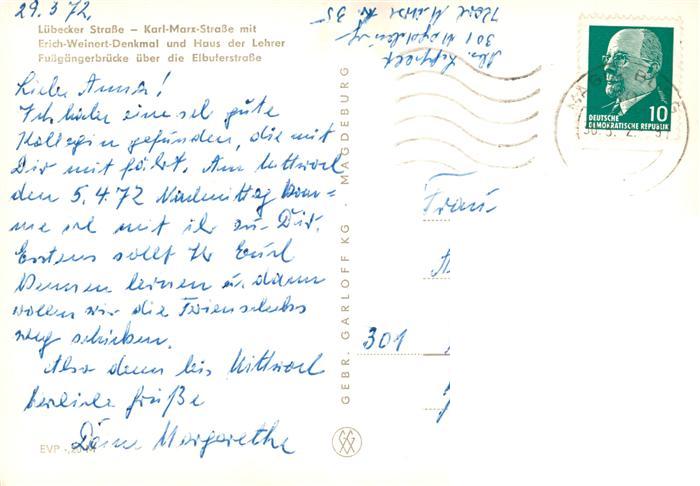 29.3.72.
Lübecker Straße – Karl-Marx-Straße mit
Erich-Weinert-Denkmal und Haus der Lehrer
Fußgängerbrücke über die Elbuferstraße
Liebe Anna!
Ich habe eine sehr gute
Kollegin gefunden, die mit
Dir mit fährt. Am Mittwoch
den 5.4.72 Nachmittag kom-
me ich mit ihr zu Dir.
Erstens sollt Ihr Euch
kennen lernen u. dann
wollen wir die Ferienschecks
weg schicken.
Also dann bis Mittwoch
herzliche Grüße
Deine Margarethe
EVP
GEBR. GARLOFF KG · MAGDEBURG
301 Magdeburg
35
DEUTSCHE
DEMOKRATISCHE REPUBLIK
10
Frau
301